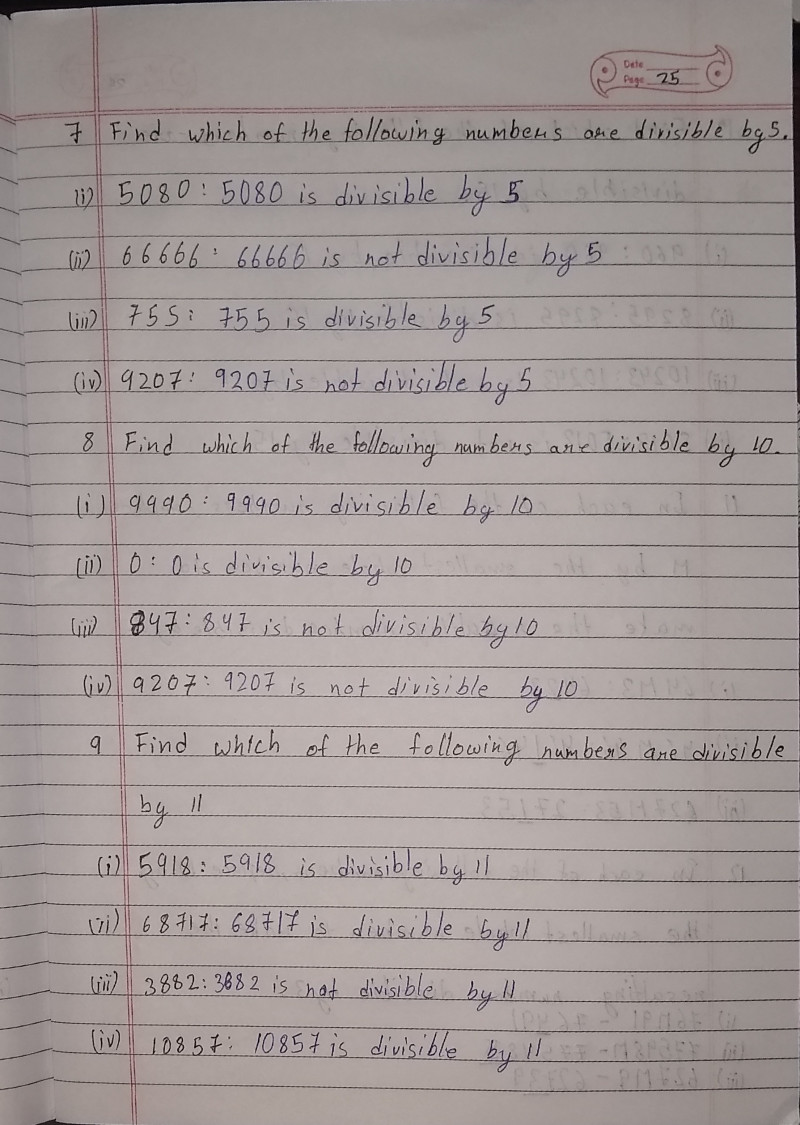 Date
Page 25
7 Find which of the following numbers are divisible by 5.
(i) 5080: 5080 is divisible by 5
(ii) 66666: 66666 is not divisible by 5
(iii) 755: 755 is divisible by 5
(iv) 9207: 9207 is not divisible by 5
8 Find which of the following numbers are divisible by 10.
(i) 9990: 9990 is divisible by 10
(ii) 0: 0 is divisible by 10
(iii) 847: 847 is not divisible by 10
(iv) 9207: 9207 is not divisible by 10
9 Find which of the following numbers are divisible
by 11
(i) 5918: 5918 is divisible by 11
(ii) 68717: 68717 is divisible by 11
(iii) 3882: 3882 is not divisible by 11
(iv) 10857: 10857 is divisible by 11